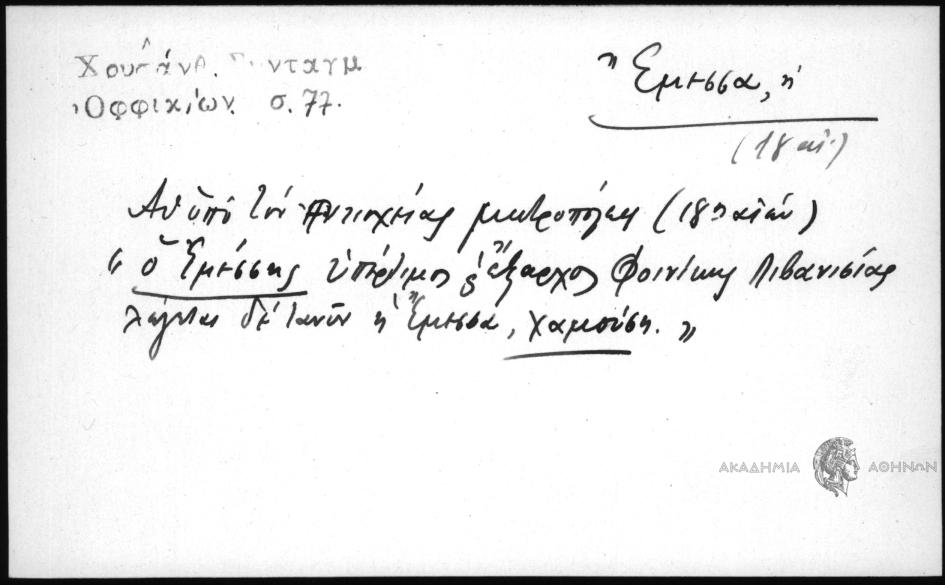 Χρυσάνθ. Συνταγμ
Ὀφφικίων. σ. 77.
Ἔμεσσα, ἡ
(18 αἰ.)
Αἱ ὑπό τόν Ἀντιοχείας μητροπόλεις (18η αἰών)
« ὁ Ἐμέσσης ὑπέρτιμος ἔξαρχος Φοινίκης Λιβανισίας
λέγεται δέ τανῦν ἡ Ἔμεσσα, χαμούση. »
ΑΚΑΔΗΜΙΑ ΑΘΗΝΩΝ